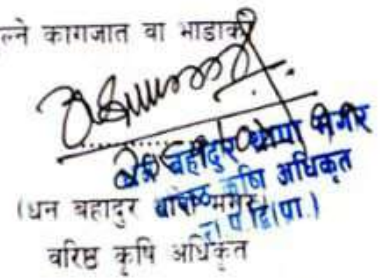 ल्ने कागजात वा भाडाको
धन बहादुर थापा मगर
वरिष्ठ कृषि अधिकृत
रा प द्वि(प्रा.)
(धन बहादुर थापा मगर)
वरिष्ठ कृषि अधिकृत